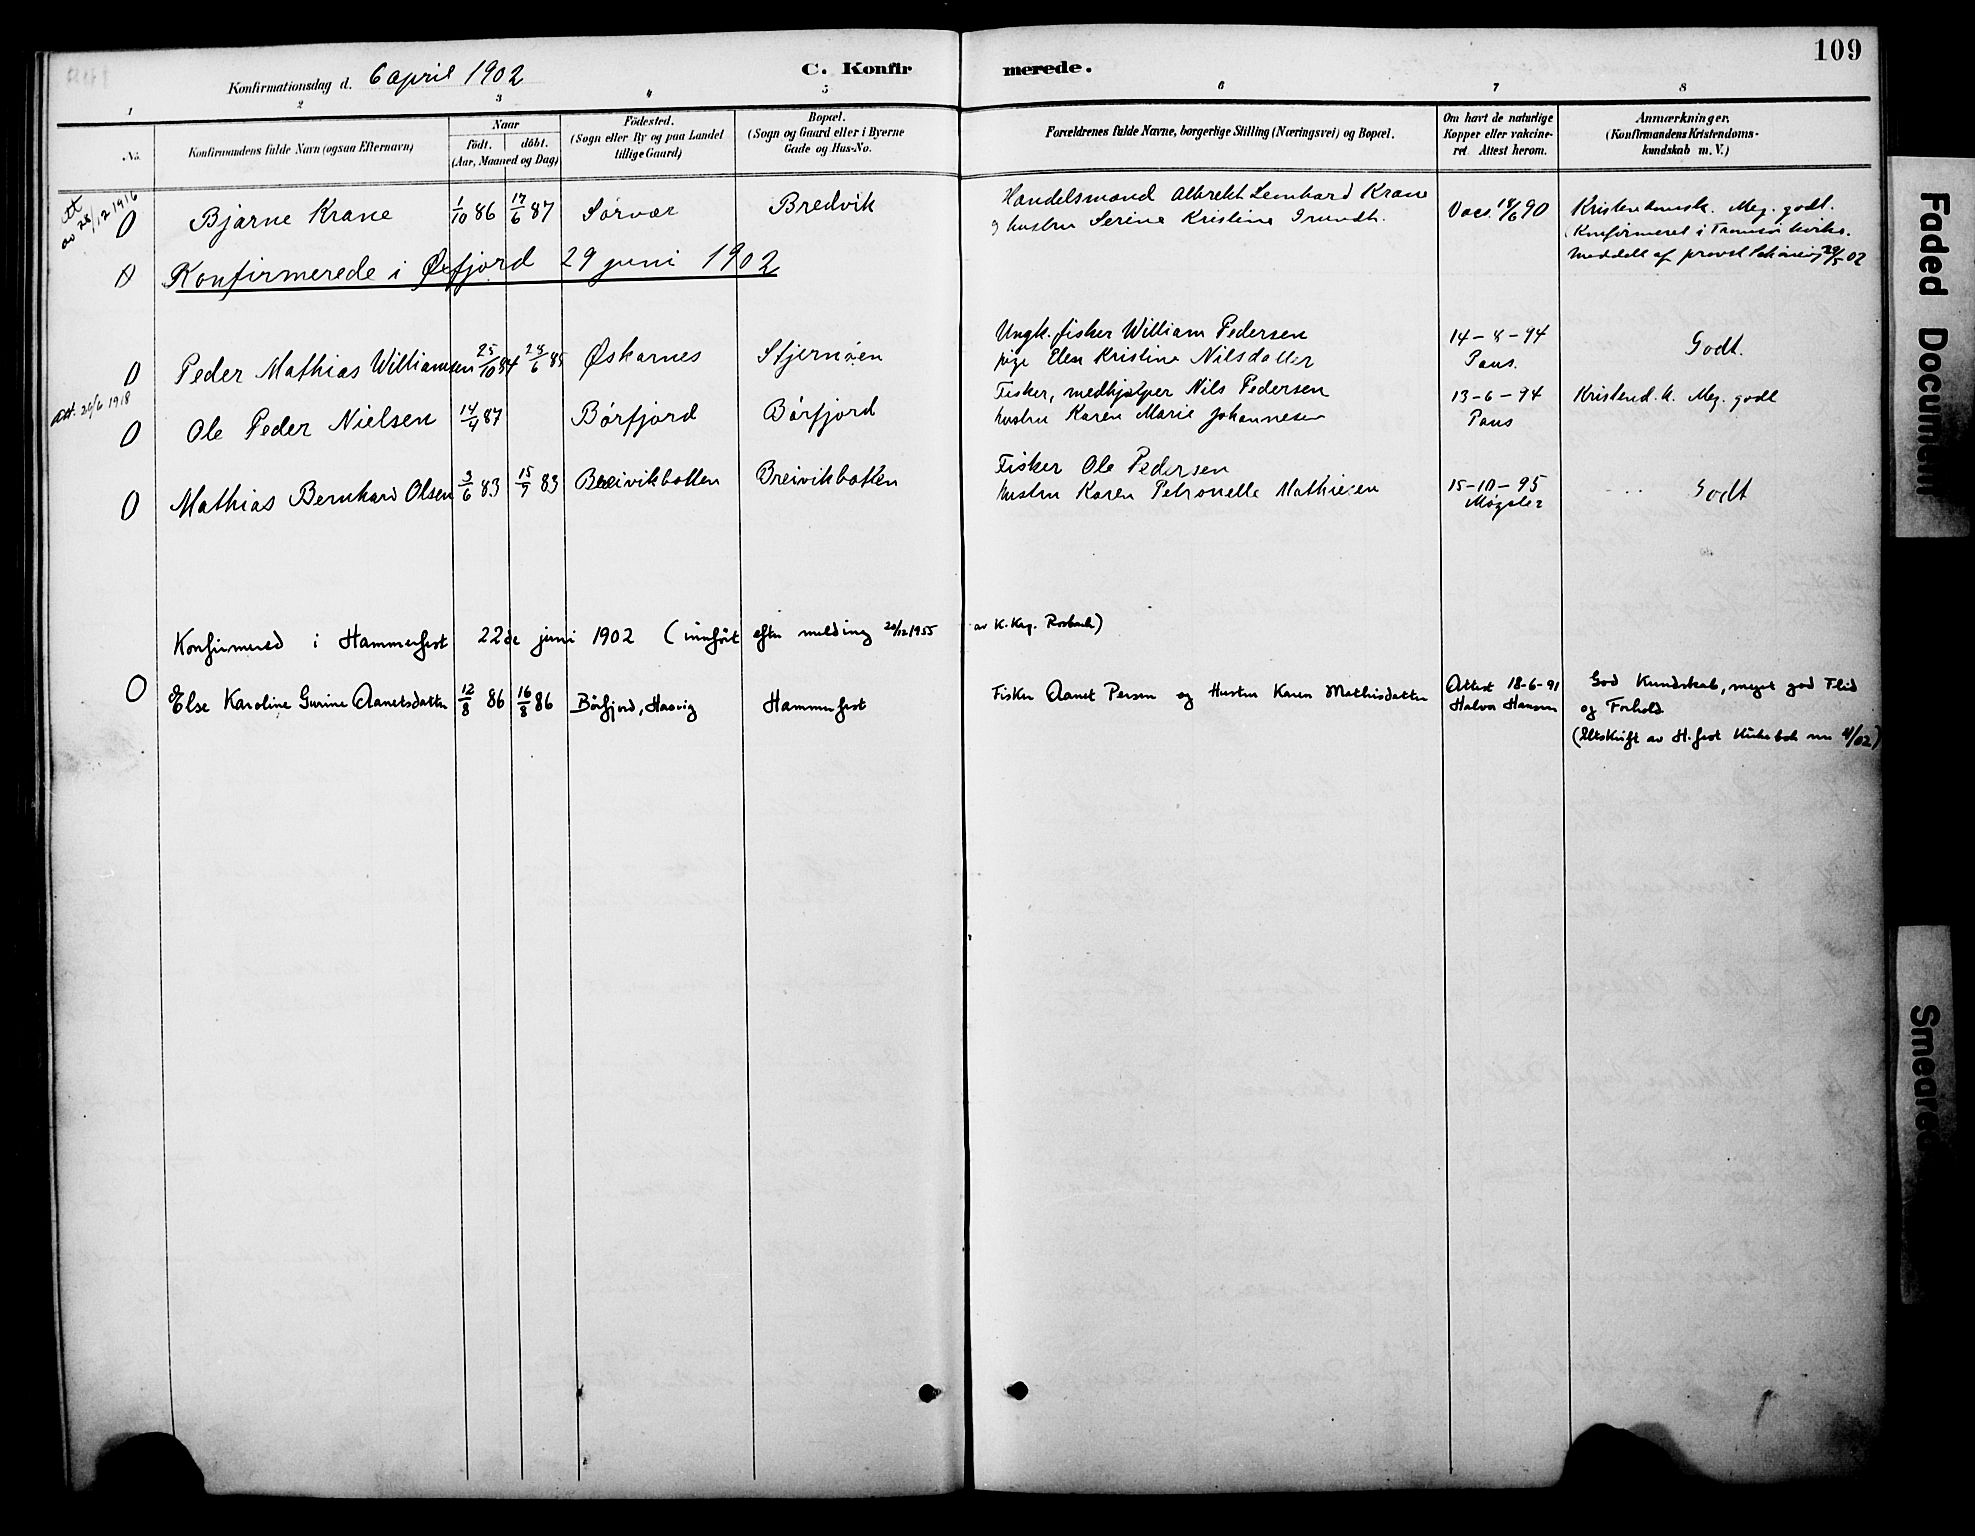 109
Konfirmationsdag d. 6 april 1902
C. Konfirmerede.
1 2 3 4 5 6 7 8
No.
Konfirmandens fulde Navn (ogsaa Efternavn)
Naar
födt. döbt.
(Aar, Maaned og Dag)
Födested.
(Sogn eller By og paa Landet
tillige Gaard)
Bopæl.
(Sogn og Gaard eller i Byerne
Gade og Hus-No.
Forældrenes fulde Navne, borgerlige Stilling (Næringsvei) og Bopæl.
Om havt de naturlige
Kopper eller vakcine-
ret Attest herom.
Anmærkninger.
(Konfirmandens Kristendoms-
kundskab m. V.)
Att
av 28/12 1916
0 Bjarne Krane 1/10 86 17/6 87 Sørvær Bredvik
Handelsmand Albrekt Lenhard Krane
og hustru Serine Kristine
Vacs. 18/6 90
Kristendomsk. Meg. godt.
Konfirmeret i Tromsø kirke.
Meddelt af provst 29/5 02
0 Konfirmerede i Øxfjord 29 juni 1902
0 Peder Mathias Williamsen 25/10 84 28/6 85 Øskarnes Stjernøen
Ungk. fisker William Pedersen
pige Elen Kristine Nilsdatter
14-8-94
Paus.
Godt.
Att. 20/6 1918
0 Ole Peder Nielsen 14/4 87 Børfjord Børfjord
Fisker, medhjælper Nils Pedersen
hustru Karen Marie Johannesen
13-6-94
Paus
Kristend.k. Meg. godt
0 Mathias Bernhard Olsen 3/6 83 15/7 83 Breivikbotten Breivikbotten
Fisker Ole Pedersen
hustru Karen Petronelle Mathiesen
15-10-95
Møgster
Godt
Konfirmered i Hammerfest 22de juni 1902 (innført efter melding 20/12 1955 av K.Kap. Rosbach)
0 Else Karoline Gurine Aanetsdatter 12/8 86 16/8 86 Børfjord, Hasvig Hammerfest
Fisker Aanet Persen og Hustru Karen Mathisdatter
Attest 18-6-91
Halvor Hansen
God Kundskab, meget god Flid
og Forhold
(Utskrift av H.fest Kirkebok nr 4/02)
Faded Document
Smeared